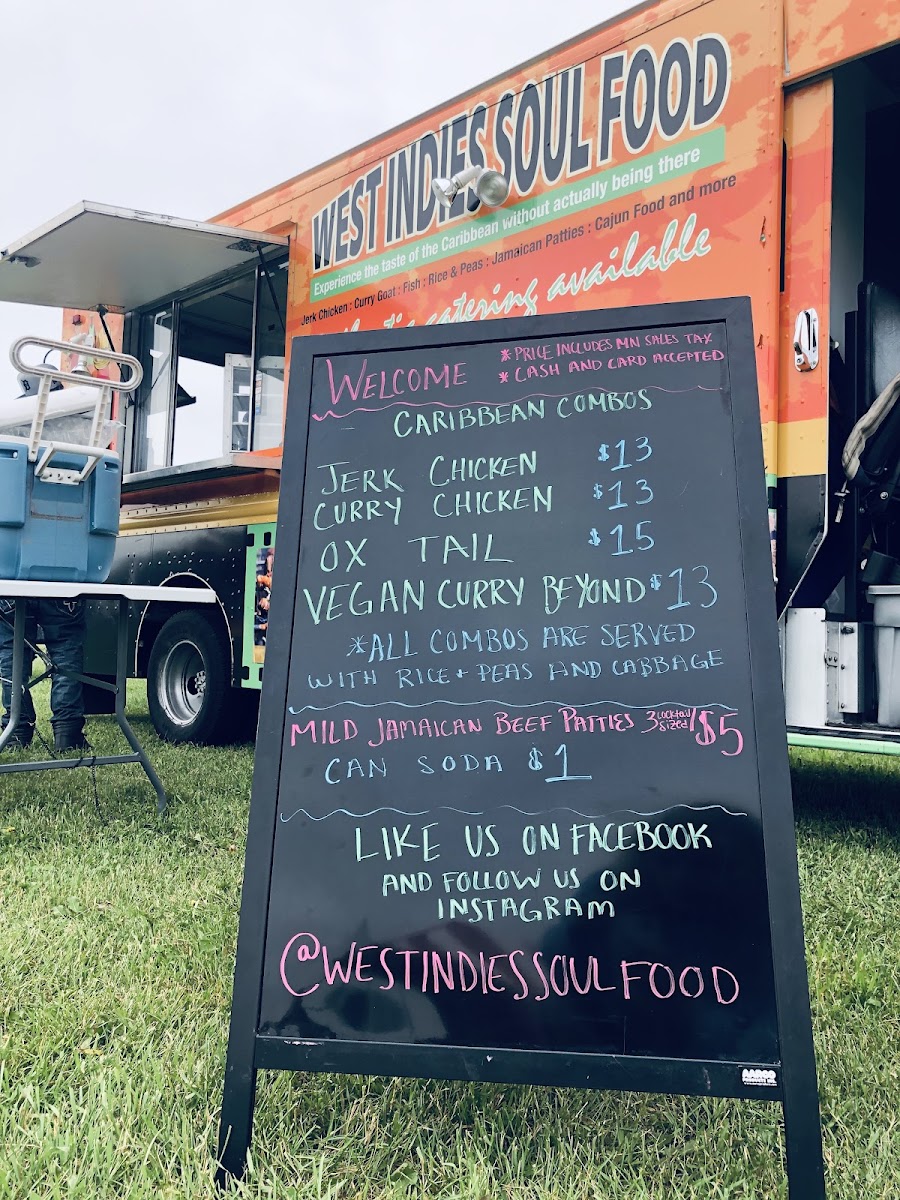 WEST INDIES SOUL FOOD
Experience the taste of the Caribbean without actually being there
Jerk Chicken : Curry Goat : Fish : Rice & Peas : Jamaican Patties : Cajun Food and more
catering available
WELCOME
* PRICE INCLUDES MN SALES TAX
* CASH AND CARD ACCEPTED
CARIBBEAN COMBOS
JERK CHICKEN $13
CURRY CHICKEN $13
OX TAIL $15
VEGAN CURRY BEYOND $13
*ALL COMBOS ARE SERVED
WITH RICE + PEAS AND CABBAGE
MILD JAMAICAN BEEF PATTIES 3 cocktail sized/$5
CAN SODA $1
LIKE US ON FACEBOOK
AND FOLLOW US ON
INSTAGRAM
@WESTINDIESSOULFOOD
AARCO
PRODUCTS INC.